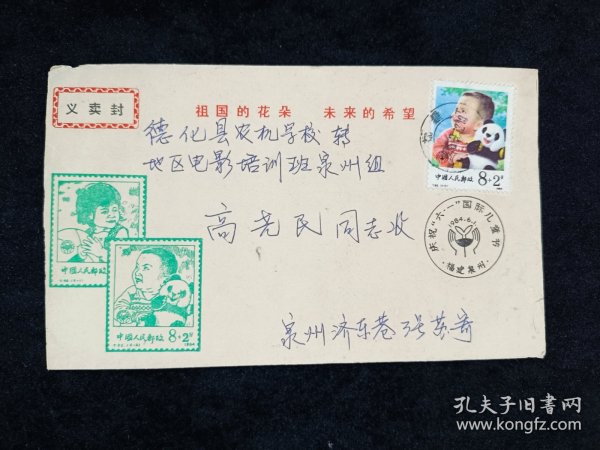 义卖封
祖国的花朵 未来的希望
德化县农机学校转
地区电影培训班泉州组
高尧民同志收
泉州济东巷3号英寄
中国人民邮政 8+2分
庆祝“六·一”国际儿童节
1984.6.1
·福建泉州·
中国人民邮政
中国人民邮政 8+2分
1984
孔夫子旧书网
www.kongfz.com